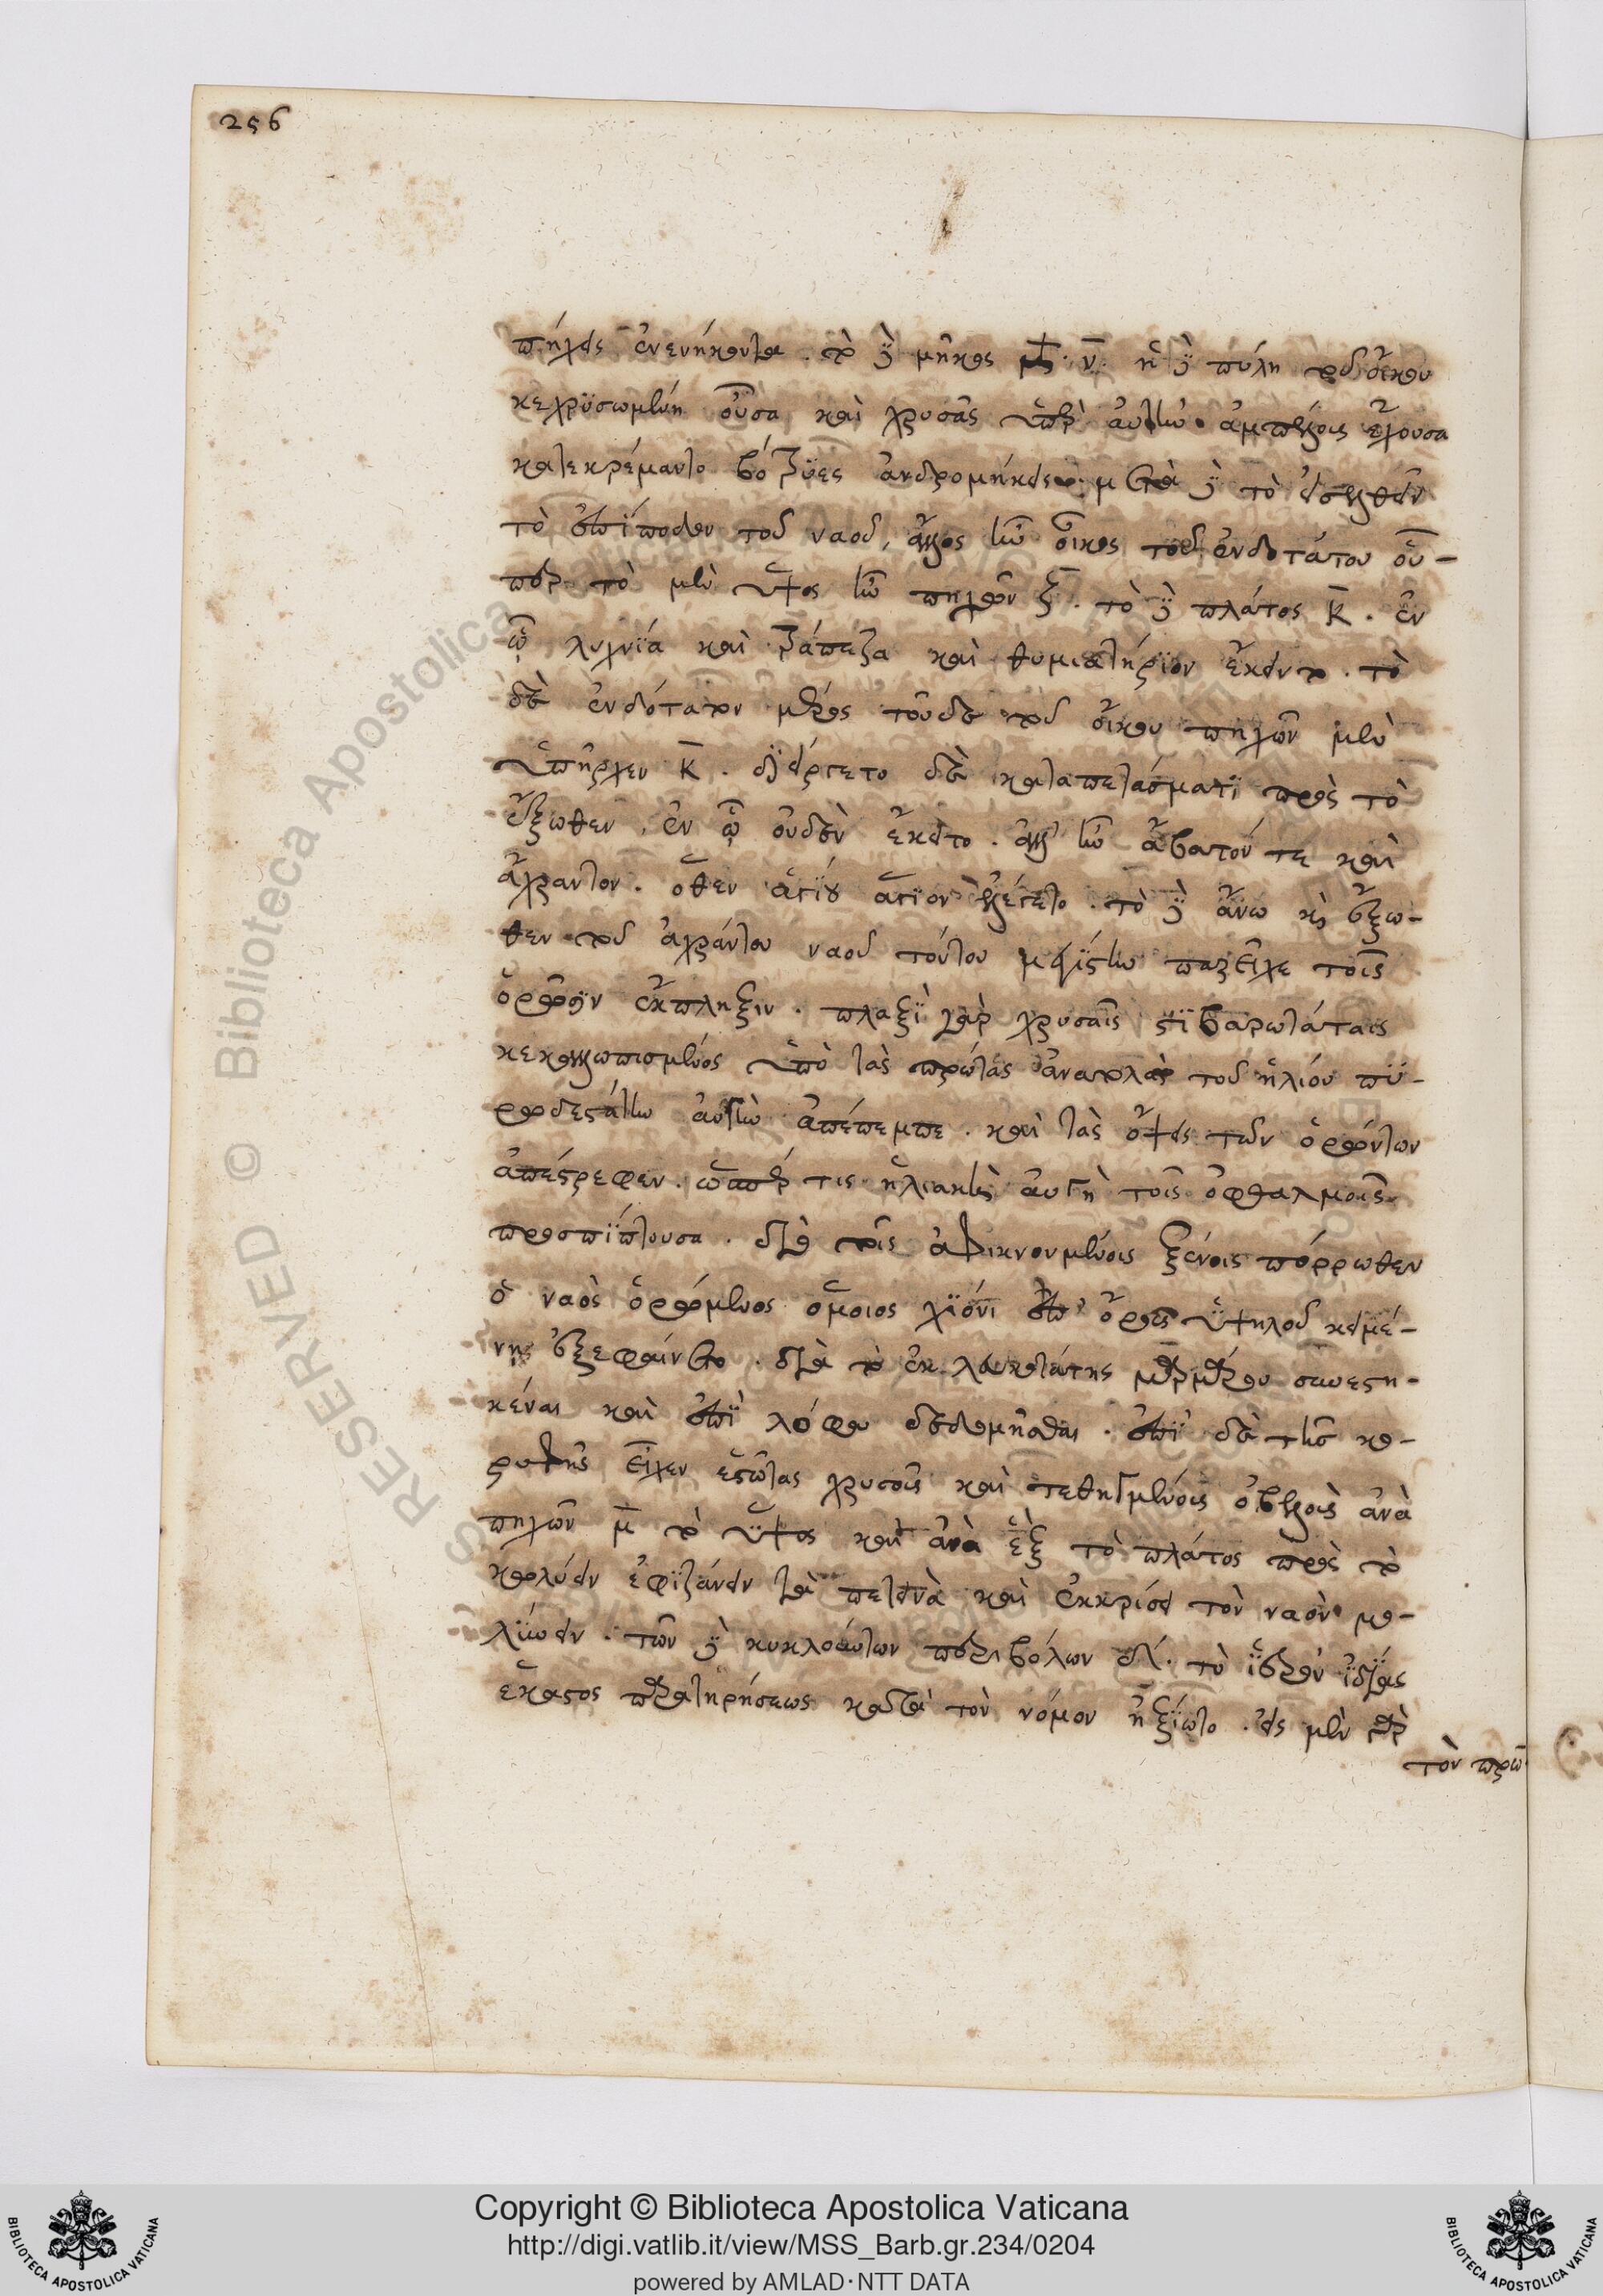 256
πήχεις ἐνενήκοντα. τὸ δὲ μῆκος ν̅. ἡ δὲ πύλη τοῦ οἴκου
κεχρϋσωμένη οὖσα καὶ χρυσᾶς ὑπὲρ αὐτὴν ἀμπέλοις ἔχουσα
κατεκρέμαντο βότρϋες ἀνδρομήκεις. μετὰ δὲ τὸ εἰσελθεῖν
τὸ ἐπίπεδον τοῦ ναοῦ, ἄλλος ἦν οἶκος τοῦ ἐνδοτάτου οὗ-
περ τὸ μὲν ὕψος ἦν πηχῶν ξ̅. τὸ δὲ πλάτος κ̅. ἐν
ᾧ λυχνΐα καὶ τράπεζα καὶ θυμιατήρϊον ἔκειντο. τὸ
δὲ ἐνδότατον μέρος τοῦδε τοῦ οἴκου πηχῶν μὲν
ὑπῆρχεν κ̅. δϊείργετο δὲ καταπετάσματϊ πρὸς τὸ
ἔξωθεν, ἐν ᾧ οὐδὲν ἔκειτο. ἀλλ' ἦν ἄβατόν τε καὶ
ἄχραντον. ὅθεν ἁγϊου ἅγϊον ἐλέγετο. τὸ δὲ ἄνω καὶ ἔξω-
θεν τοῦ ἀχράντου ναοῦ τούτου μεγΐστην παρεῖχε τοῖς
ὁρῶσϊν ἔκπληξιν. πλαξϊ γὰρ χρυσαῖς στϊβαρωτάταις
κεκαλλωπισμένος ὑπὸ τὰς πρώτας ἀνατολὰς τοῦ ἡλίου πϋ-
ρωδεστάτην αὐτὴν ἀπέπεμπε. καὶ τὰς ὄψεις τῶν ὁρώντων
ἀπέστρεφεν. ὥσπερ τις ἡλιακὴ αὐγὴ τοῖς ὀφθαλμοῖς
προσπΐπτουσα. διὸ τοῖς ἀφικνουμένοις ξένοις πόρρωθεν
ὁ ναὸς ὁρώμενος ὅμοιος χϊόνι ἐπ' ὄρους ὑψηλοῦ κειμέ-
νης ἐξεφαίνετο. διὰ τὸ ἐκ λευκοτάτης μαρμάρου συνεστη-
κέναι καὶ ἐπὶ λόφου δεδομῆσθαι. ἐπὶ δὲ τῆς κο-
ρυφῆς εἶχεν ἑστῶτας χρυσοῖς καὶ τεθηγμένοις ὀβελοῖς ἀνὰ
πηχῶν μ̅ τὸ ὕψος καὶ ἀνὰ ἓξ τὸ πλάτος πρὸς τὸ
κωλύειν ἐφϊζάνειν τὰ πετεινὰ καὶ ἐκκρίσει τὸν ναὸν μο-
λύνειν. τῶν δὲ κυκλούντων περιβόλων εἰς τὸ ϊερὸν ἰδΐας
ἕκαστος παρατηρήσεως κατὰ τὸν νόμον ἠξΐωτο. εἰς μὲν γὰρ
τὸν πρῶ
Copyright © Biblioteca Apostolica Vaticana
http://digi.vatlib.it/view/MSS_Barb.gr.234/0204
powered by AMLAD·NTT DATA
BIBLIOTECA APOSTOLICA VATICANA
BIBLIOTECA APOSTOLICA VATICANA